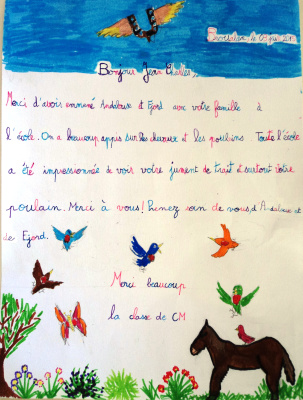 Bonjour Jean Charles,
Merci d'avoir emmené Andalouse et Ejord avec votre famille à
l'école. On a beaucoup appris sur les chevaux et les poulains. Toute l'école
a été impressionnée de voir votre jument de trait et surtout votre
poulain. Merci à vous! Prenez soin de vous, d'Andalouse et
de Ejord.
Merci beaucoup
la classe de CM